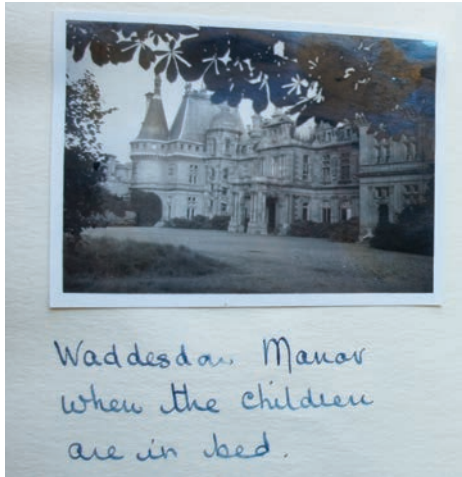 Waddesdon Manor
when the children
are in bed.